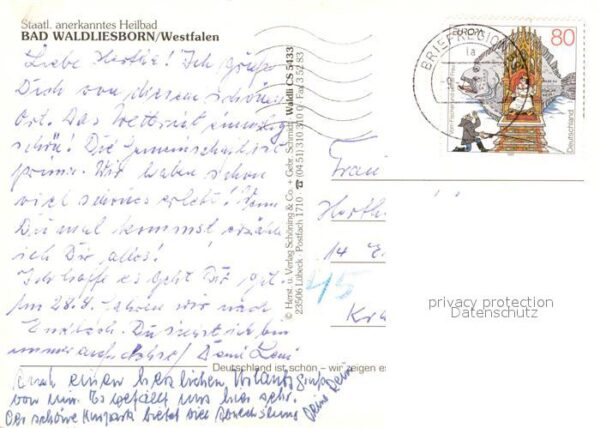 Staatl. anerkanntes Heilbad
BAD WALDLIESBORN/Westfalen
Liebe Herta! Ich grüße
Dich von diesem schönen
Ort. Das Wetter ist
schön! Die Gemeinschaft ist
prima. Wir haben schon
viel schönes erlebt! Wenn
Du mal kommst erzähle
ich Dir alles!
Ich hoffe es geht Dir gut.
Am 28.8. fahren wir nach
Du siehst ich bin
immer auf Achse!
© Herst. u. Verlag Schöning & Co. + Gebr. Schmidt Waldli CS 5433
23506 Lübeck · Postfach 1710 · ☎ (0451) 310 310 0 · Fax 3 52 83
BRIEFREGION
EUROPA
80
Deutschland
Frau
14
privacy protection
Datenschutz
Deutschland ist schön – wir zeigen es
Auch einen herzlichen Urlaubsgruß
von mir. Es gefällt uns hier sehr.
Der schöne Kurpark bietet viel Abwechslung